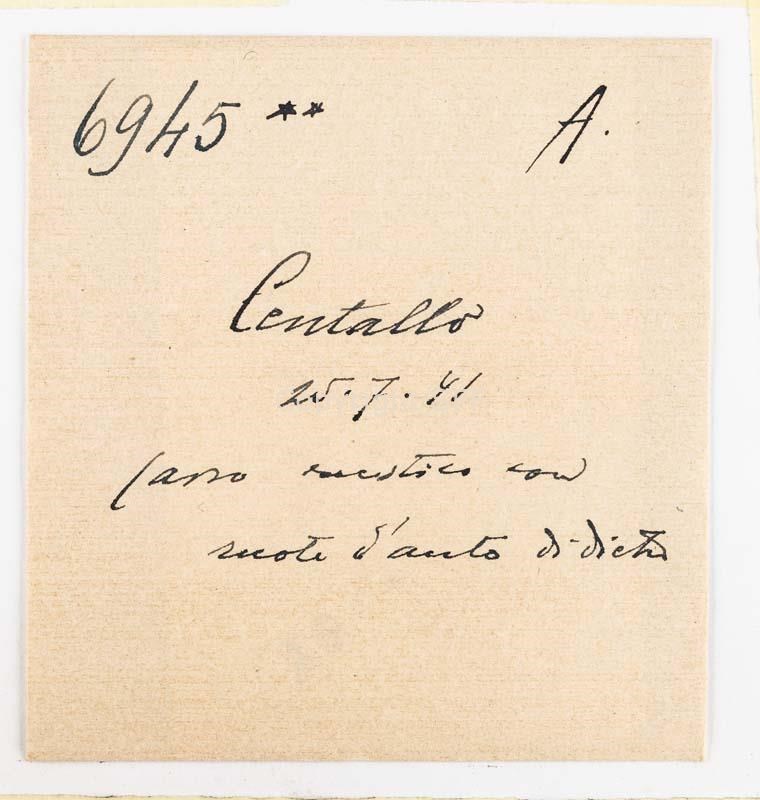 6945 ** A.
Centallo
25.7.41
Carro rustico con
ruote d'auto di dietro